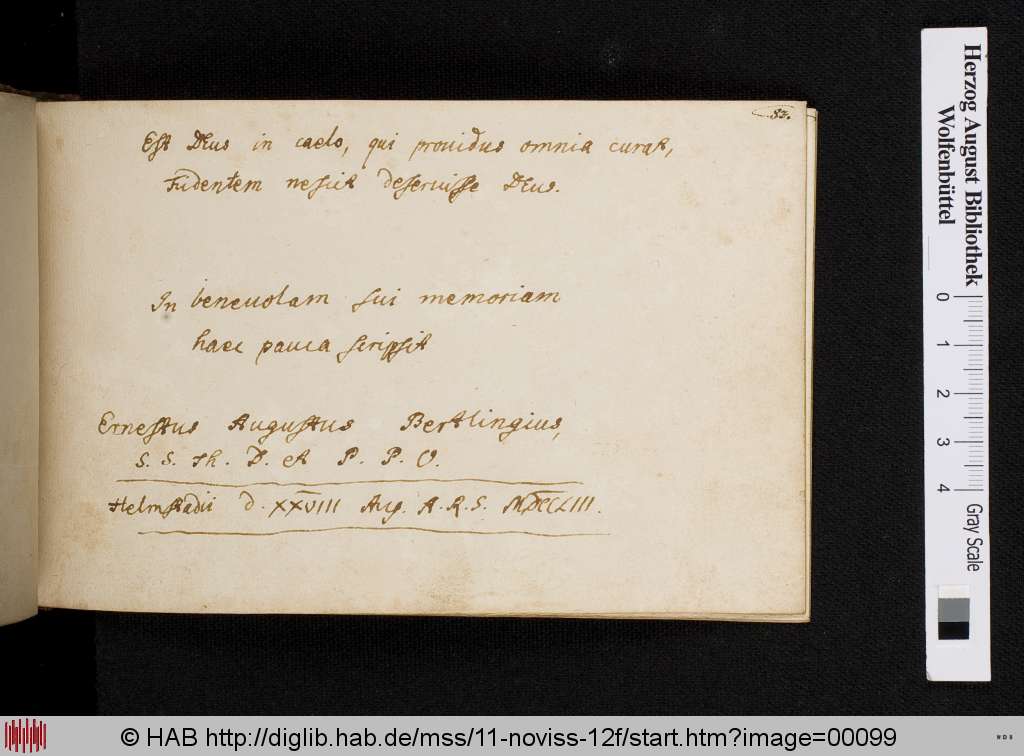 53.
Est Deus in caelo, qui providus omnia curat,
Fidentem nescit deseruisse Deus.
In benevolam sui memoriam
haec pauca scripsit
Ernestus Augustus Bertlingius,
S. S. Th. D. et P. P. O.
Helmstadii d. XXVIII Aug. A. R. S. MDCCLIII.
Herzog August Bibliothek
Wolfenbüttel
0 1 2 3 4
Gray Scale
© HAB http://diglib.hab.de/mss/11-noviss-12f/start.htm?image=00099